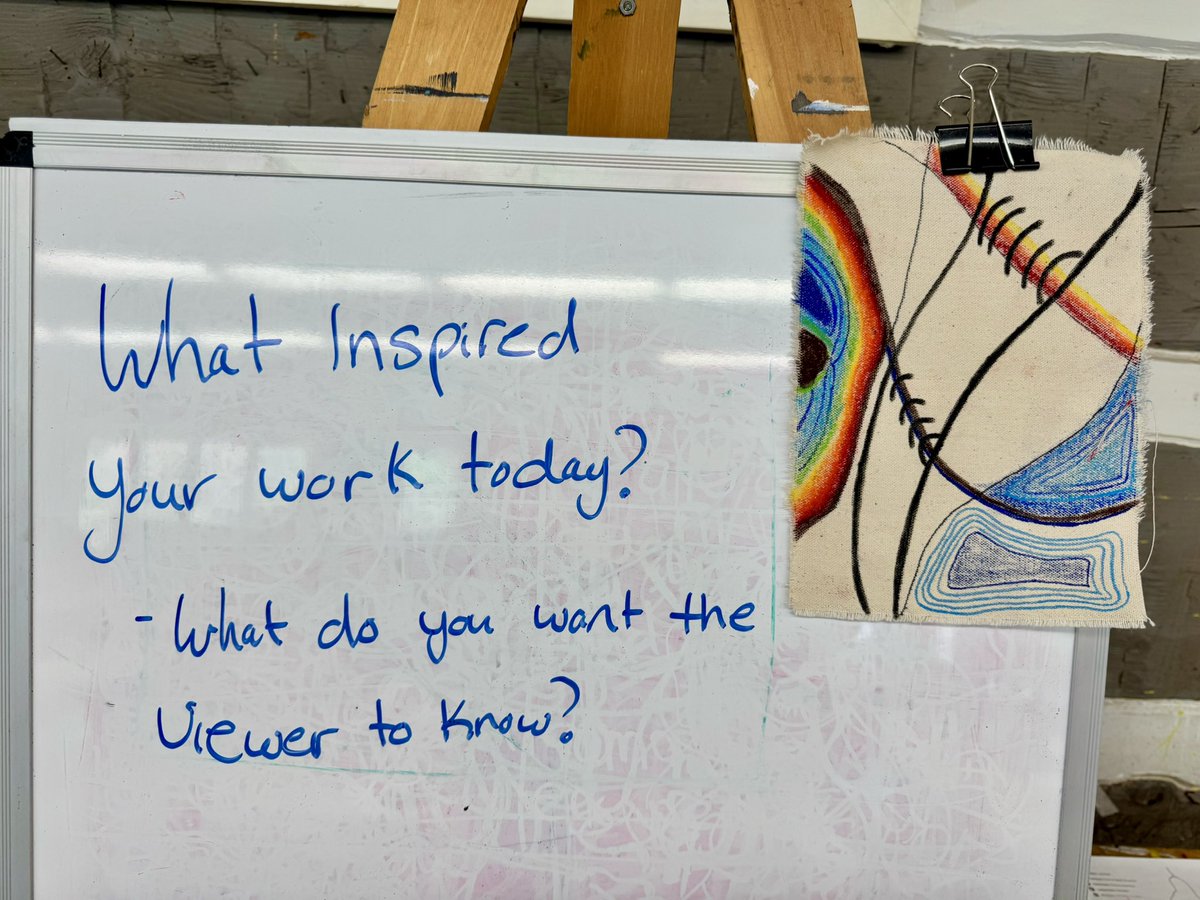 What Inspired
your work today?
- What do you want the
viewer to know?